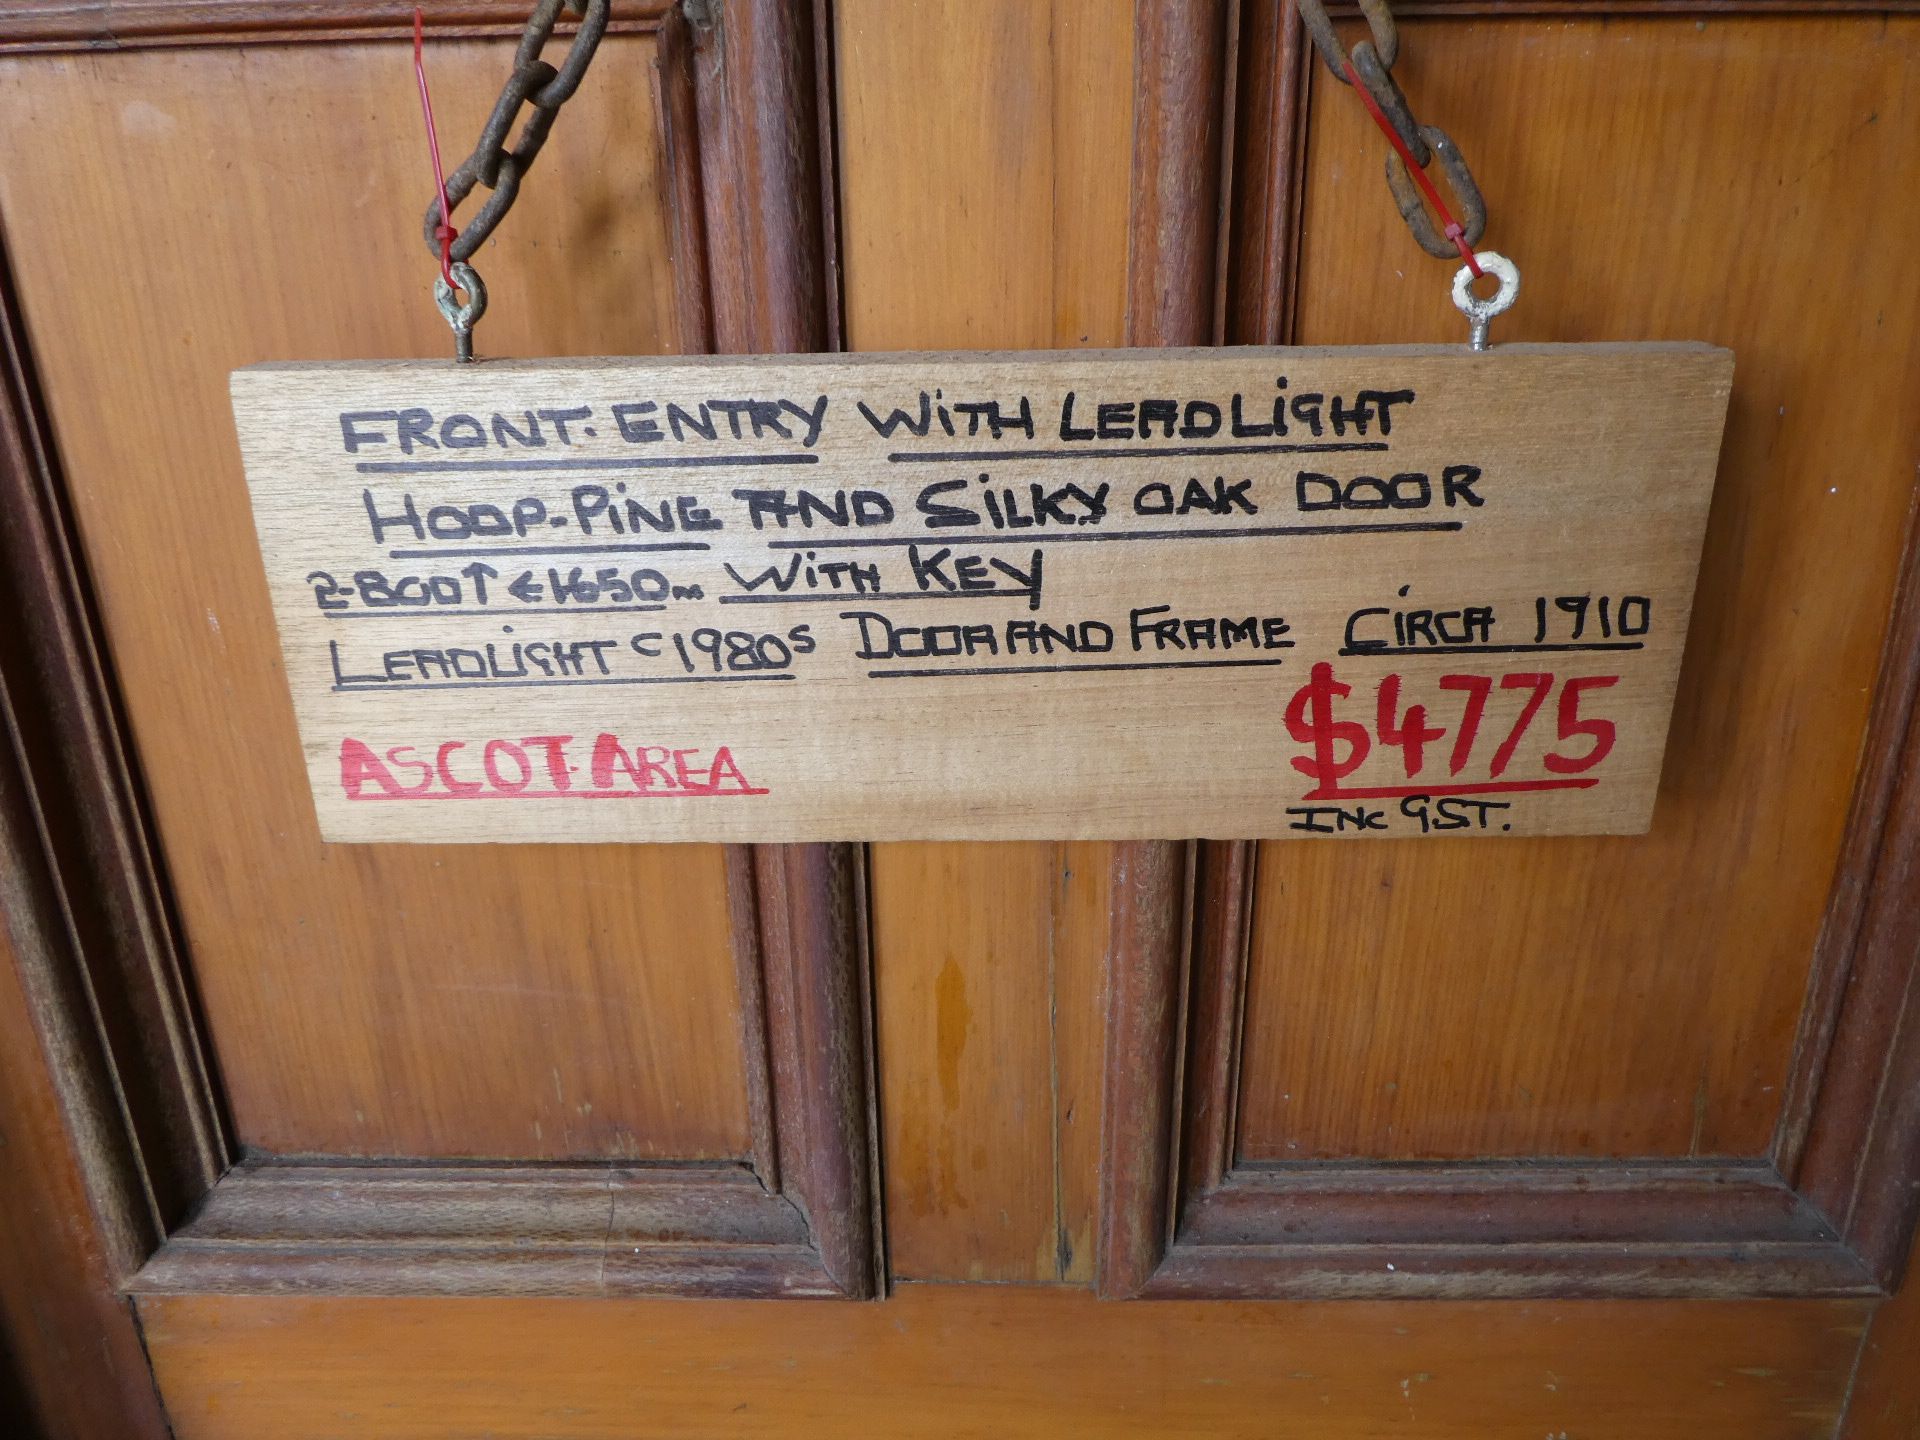 FRONT. ENTRY WITH LEADLIGHT
HOOP-PINE AND SILKY OAK DOOR
2-800↑ ←1650m WITH KEY
LEADLIGHT C1980S DOOR AND FRAME CIRCA 1910
ASCOT. AREA $4775
INC GST.